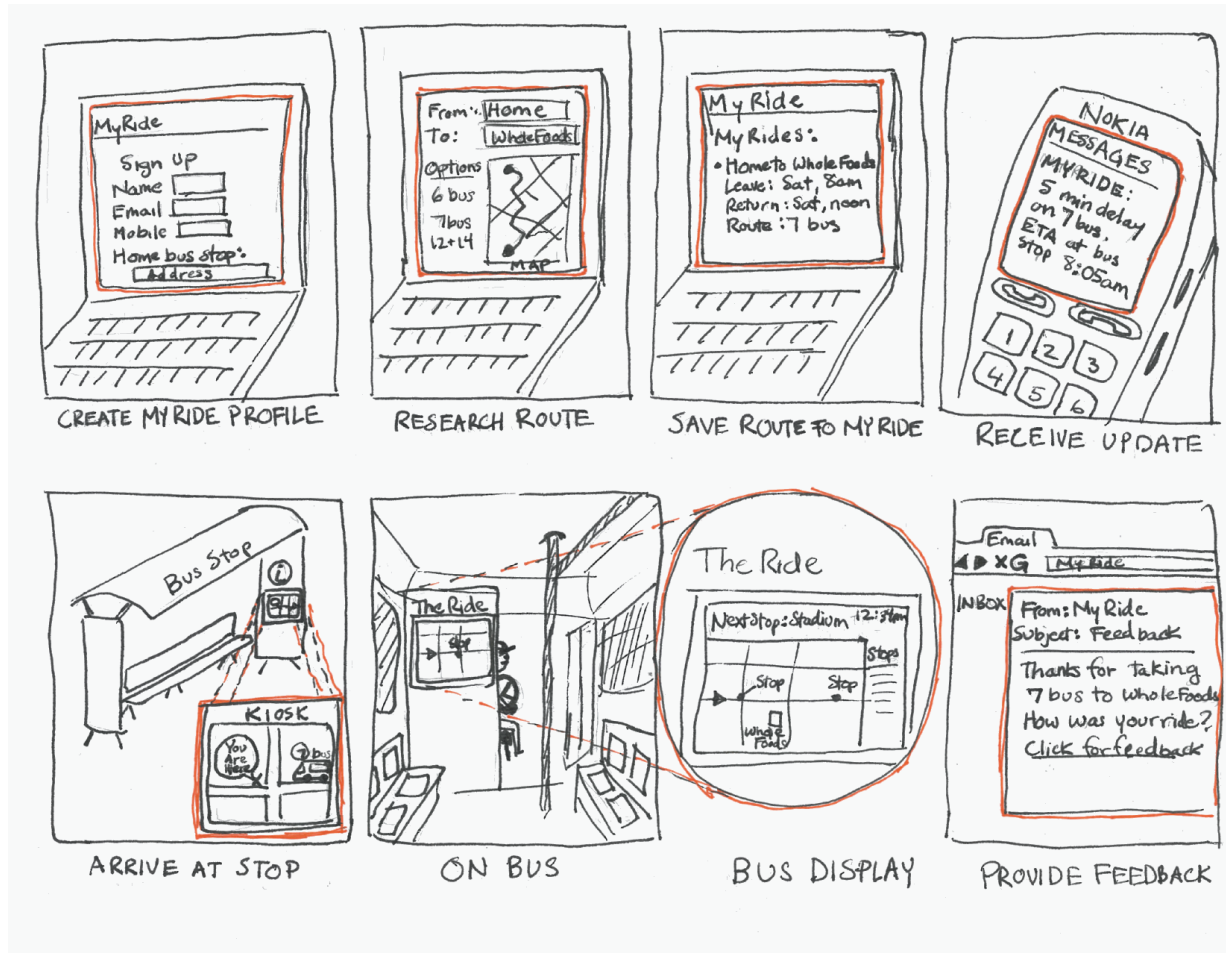 MyRide
Sign Up
Name
Email
Mobile
Home bus stop:
Address
CREATE MY RIDE PROFILE
From: Home
To: Whole Foods
Options
6 bus
7 bus
12+14
MAP
RESEARCH ROUTE
My Ride
My Rides:
• Home to Whole Foods
Leave: Sat, 8am
Return: Sat, noon
Route: 7 bus
SAVE ROUTE TO MY RIDE
NOKIA
MESSAGES
MYRIDE:
5 min delay
on 7 bus,
ETA at bus
stop 8:05am
1 2 3
4 5 6
RECEIVE UPDATE
Bus Stop
i
KIOSK
You
Are
Here
7 bus
ARRIVE AT STOP
The Ride
Stop
ON BUS
The Ride
Next Stop: Stadium 12:34pm
Stops
Stop Stop
Whole
Foods
BUS DISPLAY
Email
XG My Ride
INBOX
From: My Ride
Subject: Feedback
Thanks for taking
7 bus to Whole Foods
How was your ride?
Click for feedback
PROVIDE FEEDBACK